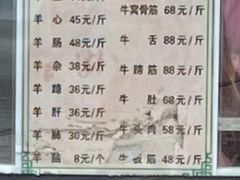 羊心 45元/斤
羊肠 48元/斤
羊杂 38元/斤
羊蹄 36元/斤
羊肝 36元/斤
羊肺 30元/斤
羊脑 8元/个
牛窝骨筋 68元/斤
牛舌 88元/斤
牛蹄筋 88元/斤
牛肚 68元/斤
牛头肉 58元/斤
牛板筋 48元/斤